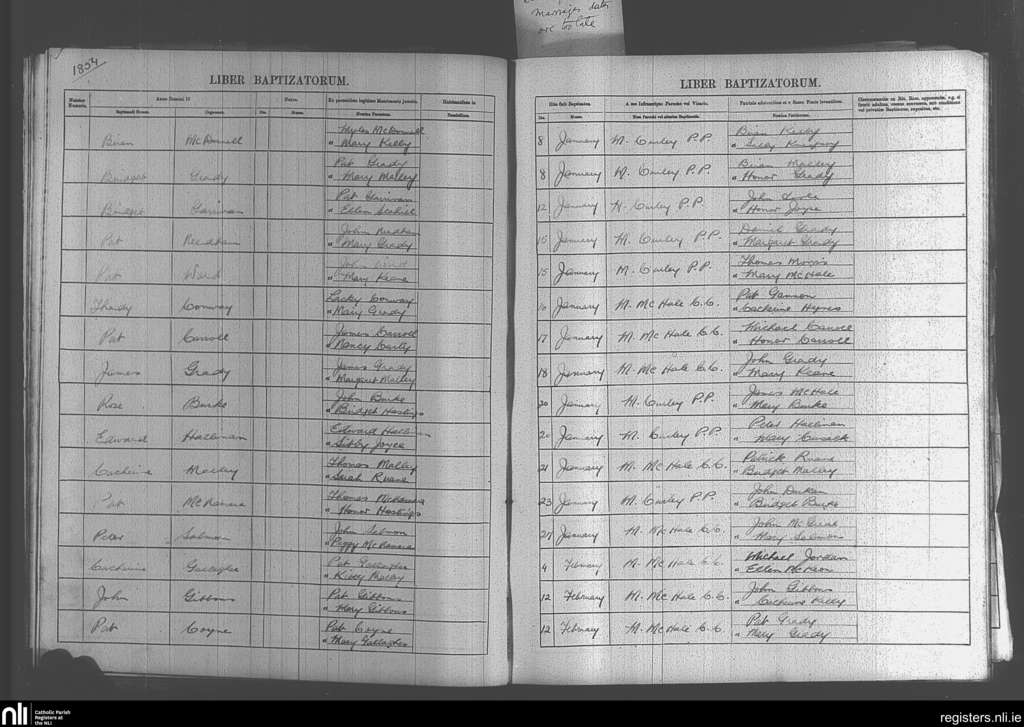 marriages dates
are to late
1854
LIBER BAPTIZATORUM.
Anno Domini 18
Natus.
Ex parentibus legitimo Matrimonio junctis.
Habitantibus in
Baptizati Nomen.
Cognomen.
Die.
Mense.
Nomina Parentum.
Brian McDonnell Myles McDonnell
" Mary Kelly
Bridget Grady Pat Grady
" Mary Malley
Bridget Garivan Pat Garivan
" Ellen
Pat Needham John Needham
" Mary Grady
Pat Ward John Ward
" Mary Keane
Thady Conway Lacky Conway
" Mary Grady
Pat Carroll James Carroll
" Nancy Carty
James Grady James Grady
" Margaret Malley
Rose Burke John Burke
" Bridget Hastings
Edward Hallinan Edward Hallinan
" Sibby Joyce
Catherine Malley Thomas Malley
" Sarah Ruane
Pat McNamara Thomas McNamara
" Honor Hastings
Peter Salmon John Salmon
" Peggy McNamara
Catherine Gallagher Pat Gallagher
" Kitty Malley
John Gibbons Pat Gibbons
" Mary Gibbons
Pat Coyne Pat Coyne
" Mary Gallagher
LIBER BAPTIZATORUM.
Die fuit Baptizatus.
A me infrascripto Parocho vel Vicario.
Patrinis adstantibus et e Sacro Fonte levantibus.
Die.
Mense.
Nom Parochi vel alterius Baptizantis.
Nomina Patrinorum.
8 January M. Curley P.P. Brian Kelly
" Sally
8 January M. Curley P.P. Brian Malley
" Honor Grady
12 January M. Curley P.P. John
" Honor Joyce
15 January M. Curley P.P. Daniel Grady
" Margaret Grady
15 January M. Curley P.P. Thomas Morris
" Mary McHale
16 January M. McHale C.C. Pat Gannon
" Catherine Hynes
17 January M. McHale C.C. Michael Carroll
" Honor Carroll
18 January M. McHale C.C. John Grady
" Mary Keane
20 January M. Curley P.P. James McHale
" Mary Burke
20 January M. Curley P.P. Peter Hallinan
" Mary Cusack
21 January M. McHale C.C. Patrick Ruane
" Bridget Malley
23 January M. Curley P.P. John Durkan
" Bridget Burke
27 January M. McHale C.C. John
" Mary Salmon
4 February M. McHale C.C. Michael Jordan
" Ellen McKeon
12 February M. McHale C.C. John Gibbons
" Catherine Kelly
12 February M. McHale C.C. Pat Grady
" Mary Grady
nli
Catholic Parish
Registers at
the NLI
registers.nli.ie